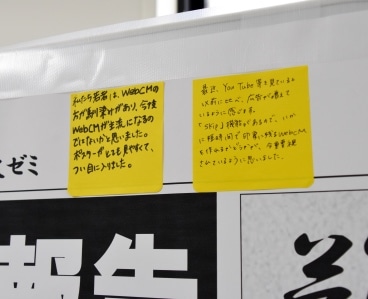 私たち若者は、WebCMの
方が馴り染みがあり、今後
WebCMが主流になるの
ではないかと思いました。
ポスターがとても見やすくて、
つい目に入りました。
最近、You Tube等を見ていると
以前に比べ、広告が増えて
いるように感じます。
「skip」機能があるので、いか
に短時間で印象に残るWebCM
を作れるかどうかが、今重要視
されているように思いました。
ゼミ
報告